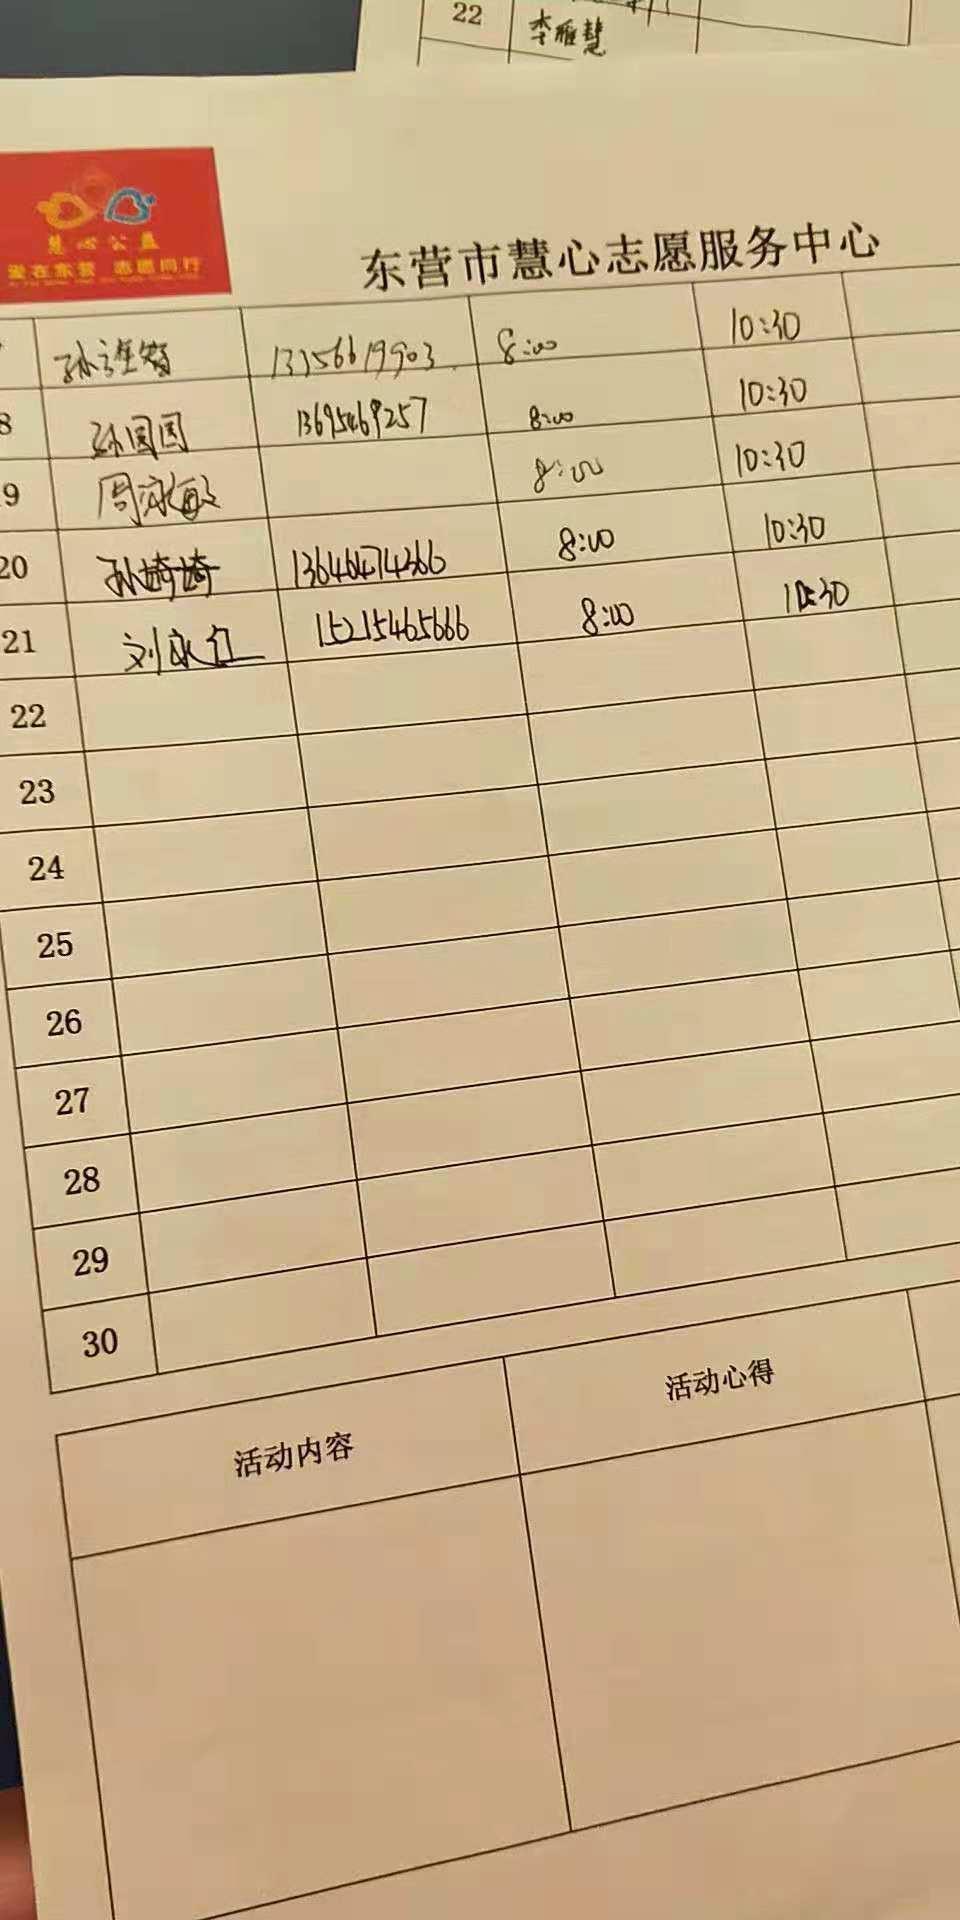 22 李雅慧
慧心公益
爱在东营 志愿同行
东营市慧心志愿服务中心
13156619903 8:00 10:30
8 孙国国 13695469257 8:00 10:30
19 周永敏 8:00 10:30
20 孙埼埼 13646474366 8:00 10:30
21 刘永红 15215465666 8:00 10:30
22
23
24
25
26
27
28
29
30
活动内容 活动心得